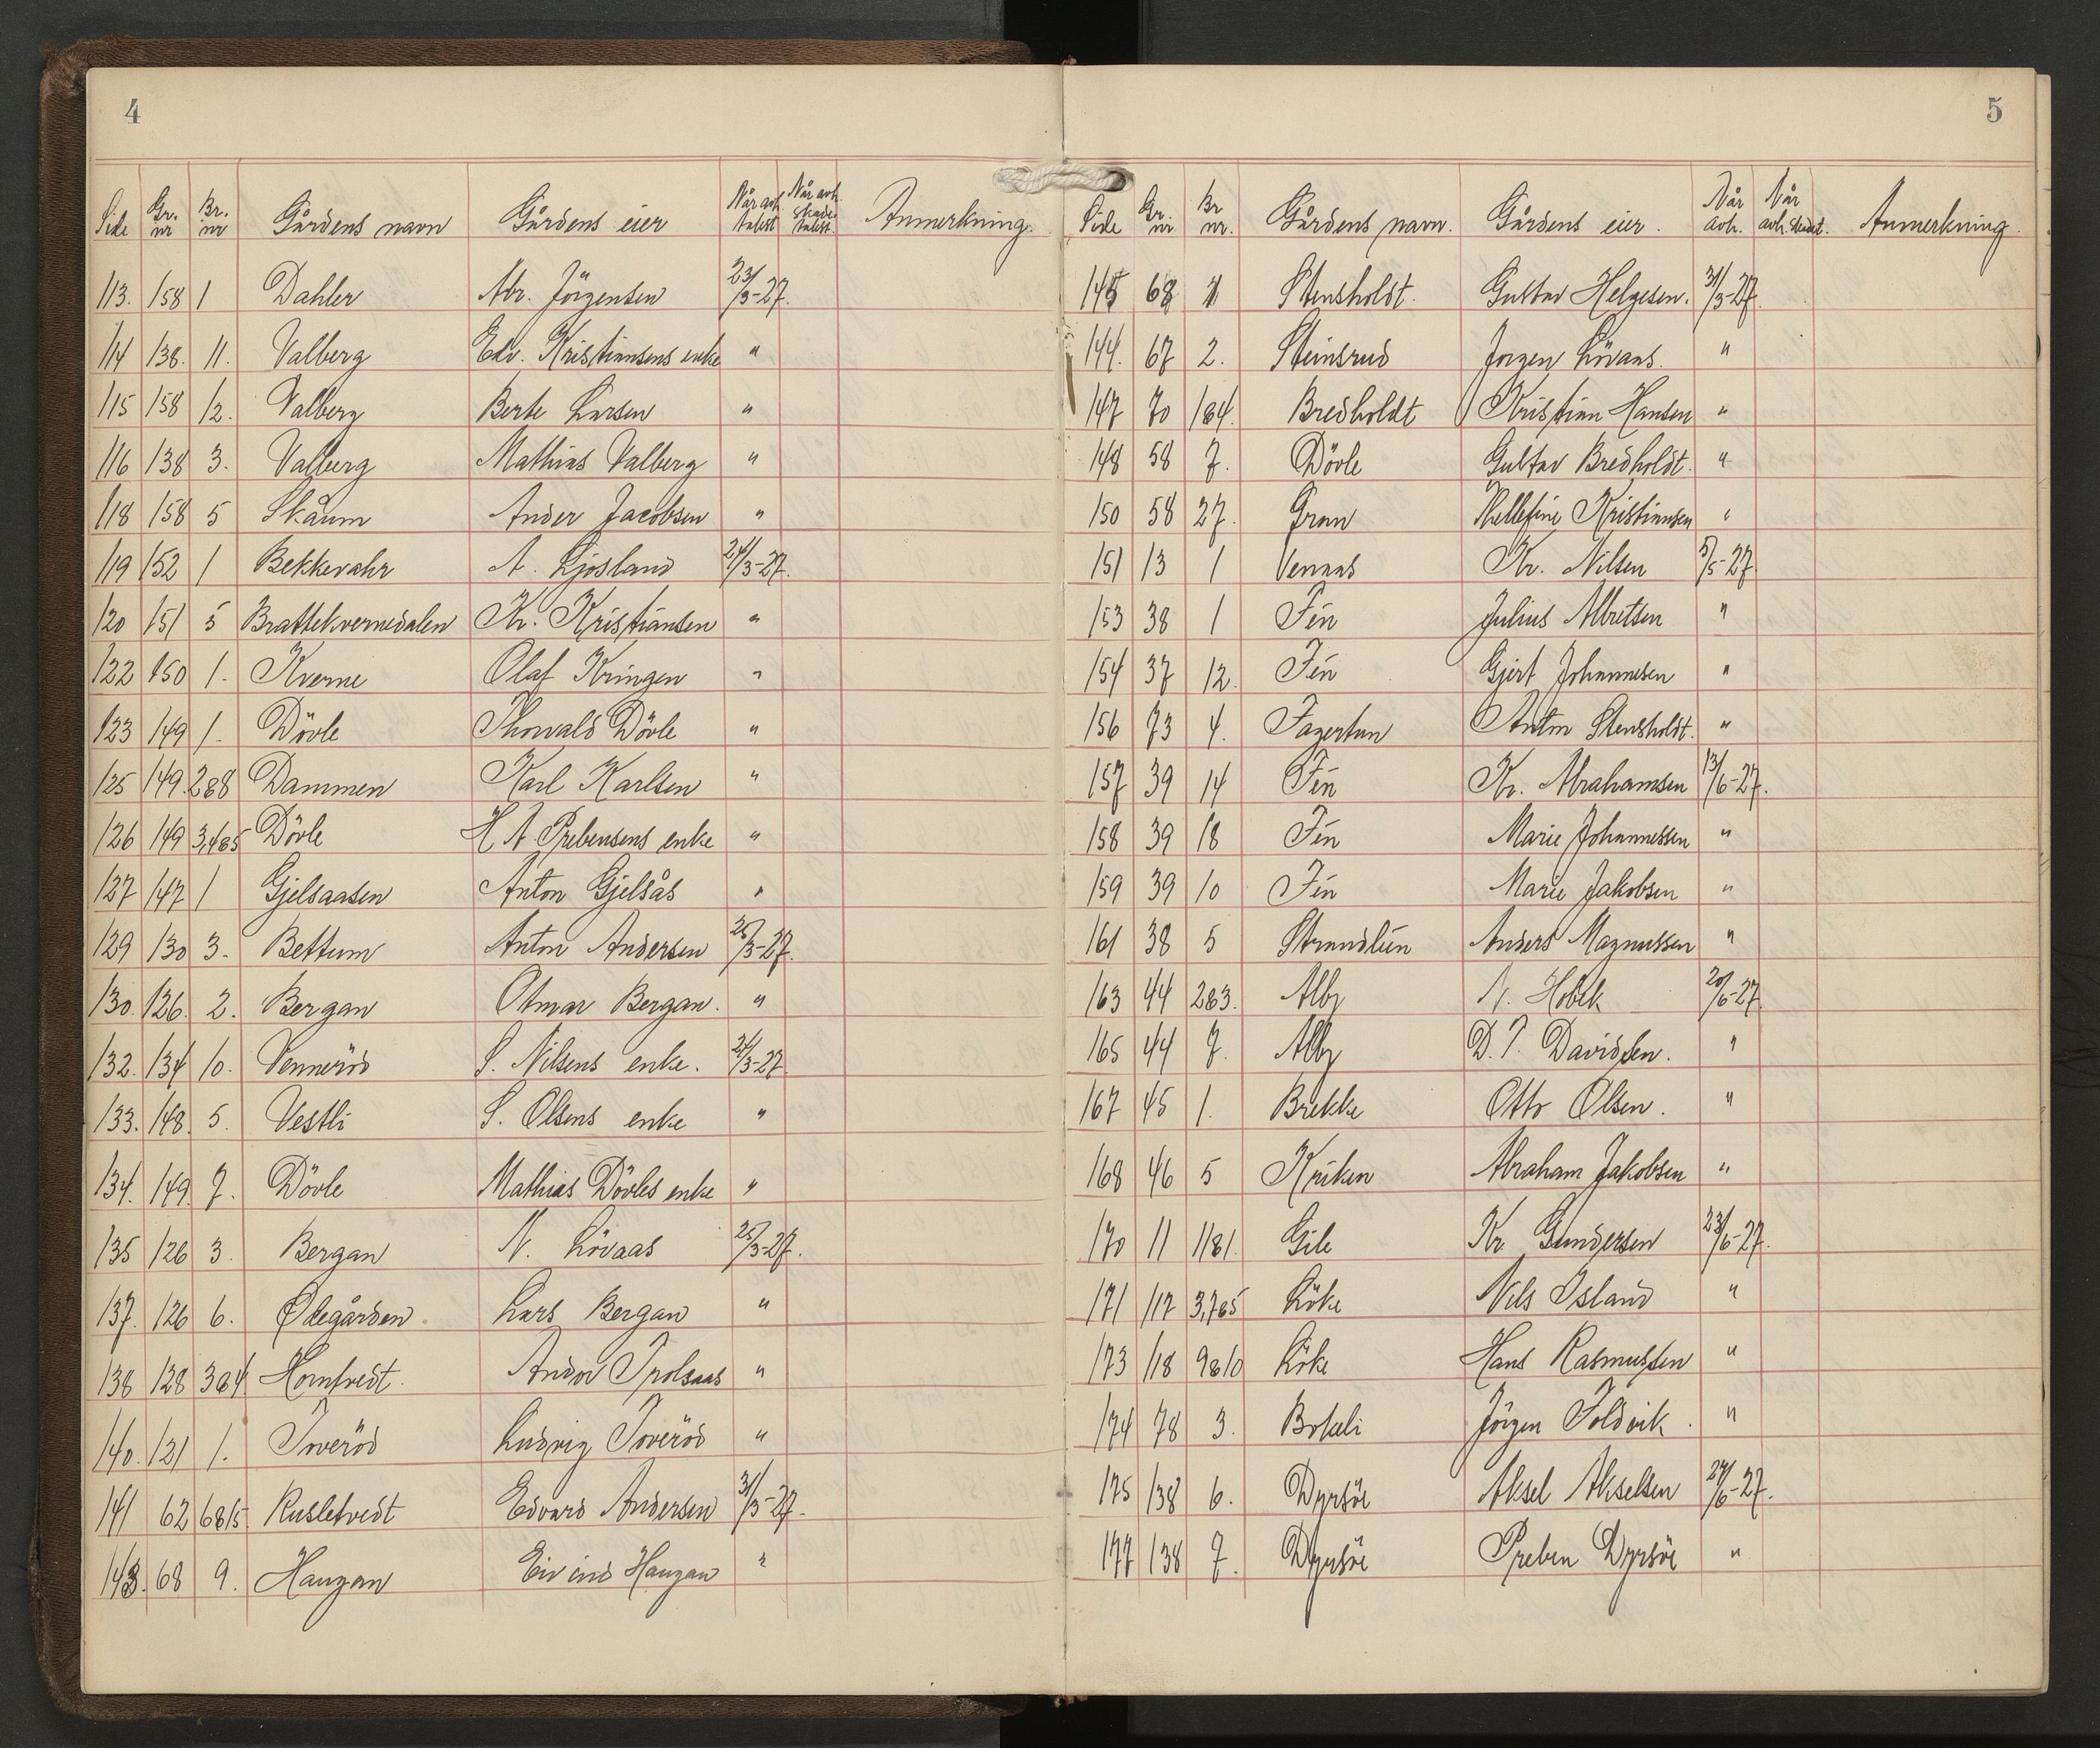 4
Side Gr. nr Br. nr Gårdens navn Gårdens eier Når avh. takst Når avh. skade takst. Anmerkning.
113. 158 1 Dahler Abr. Jörgensen 23/3-27.
114 138. 11. Valberg Edv. Kristiansens enke "
115 158 12. Valberg Berte Larsen "
116 138 3. Valberg Mathias Valberg "
118 158 5 Skåum Ander Jacobsen "
119 152 1 Bekkevahr A. Ljosland 24/3-27.
120 151 5 Brattekvernedalen Kr. Kristiansen "
122 150 1. Kverne Olaf Kringen "
123 149 1. Dövle Thorvald Dövle "
125 149. 2&8 Dammen Karl Karlsen "
126 149 3,4&5 Dövle H A Prebensens enke "
127 147 1 Gjelsaasen Anton Gjelsås "
129 130 3. Bettum Anton Andersen 25/3-27.
130. 126. 2. Bergan Otmar Bergan. "
132. 134 10. Venneröd S. Nilsens enke. 24/3-27.
133. 148. 5. Vestli S. Olsens enke "
134. 149. 7. Dövle Mathias Dövles enke "
135 126 3. Bergan N. Lövaas 25/3-27.
137. 126 6. Ødegården. Lars Bergan "
138 128 3&4 Homtvedt. Andor "
140. 121 1. Toveröd Ludvig Toveröd "
141 62 6&15 Rusletvedt Edvard Andersen 31/3-27.
143. 68 9. Haugan Eivind Haugan "
5
Side Gr. nr. Br nr. Gårdens navn. Gårdens eier. Når avh. Når avh. Anmerkning.
145 68 1 Stensholdt. Gustav Helgesen. 31/3-27.
144. 67 2. Steinsrud Jorgen Lövaas. "
147 70 1&4. Bredholdt Kristian Hansen "
148 58 7. Dövle Gustav Bredholdt. "
150 58 27. Gran Kristiansen "
151 13 1 Venaas Kr. Nilsen 5/5-27.
153 38 1 Fén Julius Albretsen "
154 37 12. Fén Gjert Johannesen "
156 73 4. Fagertun Anton Stensholdt. "
157 39 14 Fén Kr. Abrahamsen 13/6-27.
158 39 18 Fén Marie Johannessen "
159 39 10 Fén Marie Jakobsen "
161 38 5 Strandlún Anders Magnussen "
163 44 2&3. Alby N. Hobek 20/6-27.
165 44 7. Alby D. T. Davidsen. "
167 45 1. Brekke Otto Olsen. "
168 46 5 Kriken Abraham Jakobsen "
170 11 1181. Gile Kr. Gundersen 23/6-27.
171 117 3,7&5 Löke Nils Island "
173 118 9&10 Löke Hans Rasmussen "
174 78 3. Bokeli Jörgen Foldvik. "
175 138 6. Dyrsöe Aksel Akselsen 24/6-27.
177 138 7. Dyrsöe Preben Dyrsöe "